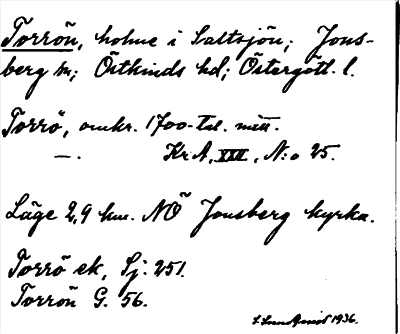 Torrön, holme i Saltsjön; Jons-
berg sn; Östkinds hd; Östergötl. l.
Torrö, omkr. 1700-tal. mitt.
—. Kr A, XVII, N:o 25.
Läge 2,9 km. NÖ Jonsberg kyrka.
Torrö ek, Sj. 251.
Torrön G. 56.
1936.